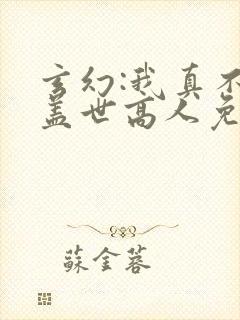 玄幻:我真不
盖世高人免
蘇金蓉